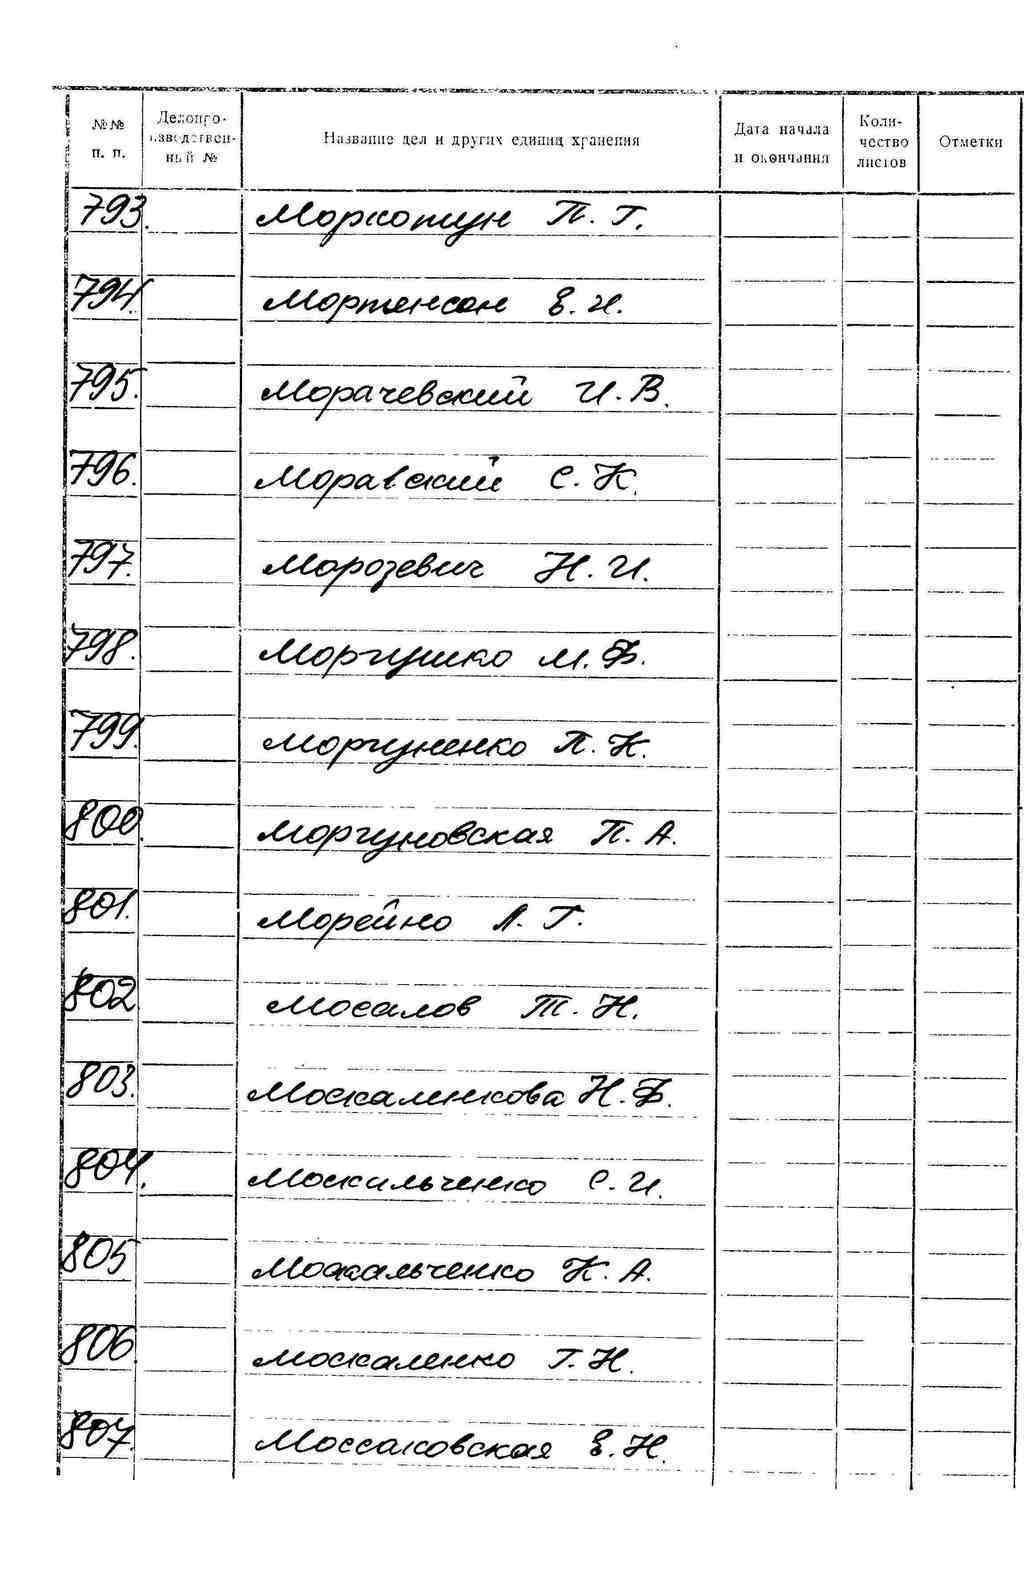 №№ п. п.
Делопро-
изводствен-
ный №
Название дел и других единиц хранения
Дата начала
и окончания
Коли-
чество
листов
Отметки
793. Моркотун П. Г.
794. Мортенсон Е. И.
795. Морачевский И. В.
796. Моравский С. К.
797. Морозевич Н. И.
798. Моргушко М. Ф.
799. Моргуненко П. К.
800. Моргуновская П. А.
801. Морейно Л. Г.
802 Мосалов Т. Н.
803. Москаленкова Н. Ф.
804. Москальченко С. И.
805 Москальченко К. А.
806. Москаленко Г. Н.
807. Моссаковская Е. Н.